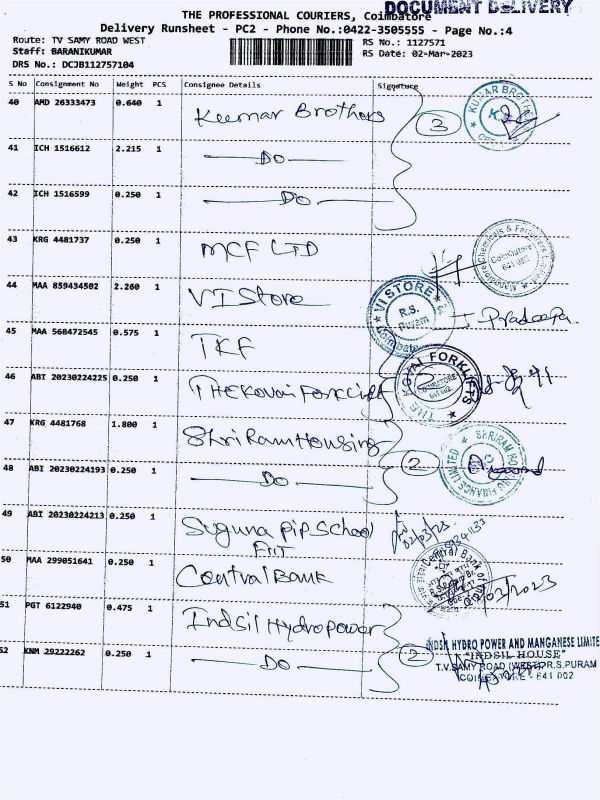 DOCUMENT DELIVERY
THE PROFESSIONAL COURIERS, Coimbatore
Delivery Runsheet - PC2 - Phone No.:0422-3505555 - Page No.:4
Route: TV SAMY ROAD WEST
RS No.: 1127571
Staff: BARANIKUMAR
RS Date: 02-Mar-2023
DRS No.: DCJB112757104
S No Consignment No Weight PCS Consignee Details Signature
40 AMD 26333473 0.640 1 Kumar Brothers 3
41 ICH 1516612 2.215 1 DO
42 ICH 1516599 0.250 1 DO
43 KRG 4481737 0.250 1 MCF LTD
Coimbatore
641 002
44 MAA 859434502 2.260 1 VI Store
VI STORE
R.S. Puram
J. Pradeepa
45 MAA 568472545 0.575 1 TKF
46 ABI 20230224225 0.250 1 THE Kovai Forklift
THE KOVAI FORKLIFTS
COIMBATORE
641 002
47 KRG 4481768 1.800 1 Shri Ram Housing 2
SHRIRAM HOUSING FINANCE LIMITED
48 ABI 20230224193 0.250 1 DO
49 ABI 20230224213 0.250 1 Suguna pip School
02/03/23
50 MAA 299051641 0.250 1 Central Bank
Central Bank of
02/03/2023
51 PGT 6122940 0.475 1 Indsil Hydropower 2
52 KNM 29222262 0.250 1 DO
INDSIL HYDRO POWER AND MANGANESE LIMITE
"INDSIL HOUSE"
T.V.SAMY ROAD (WEST) R.S.PURAM
COIMBATORE - 641 002